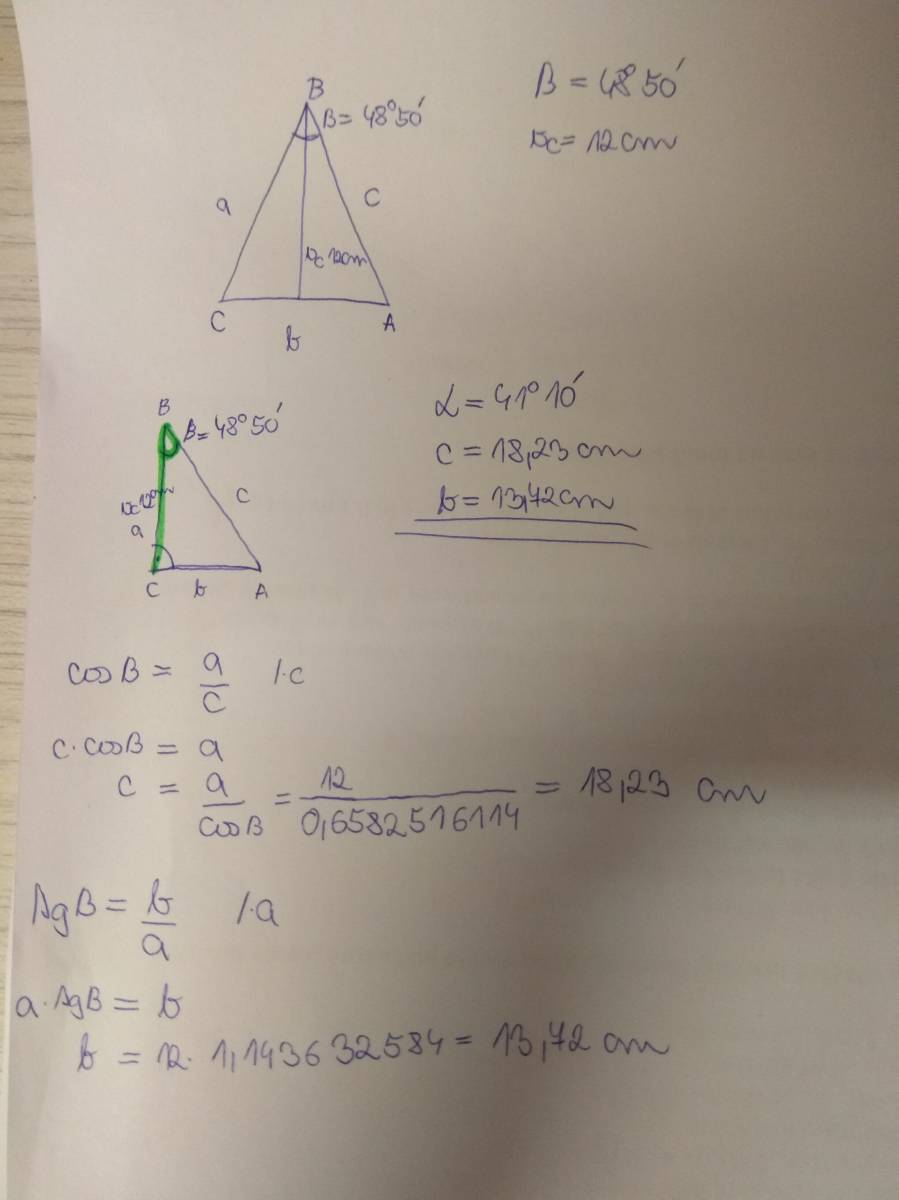 B
β = 48°50′
β = 48°50′
vc = 12 cm
a
c
vc 12cm
C
A
b
B
β = 48°50′
vc 12cm
c
a
C
b
A
α = 41°10′
c = 18,23 cm
b = 13,72 cm
cos β = a/c /·c
c·cosβ = a
c = a/cosβ = 12/0,6582516114 = 18,23 cm
tgβ = b/a /·a
a·tgβ = b
b = 12·1,143632584 = 13,72 cm